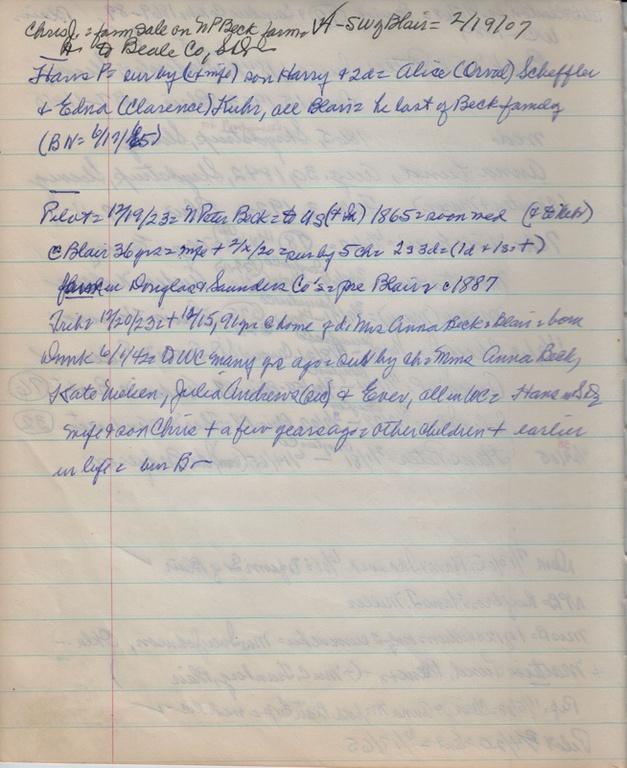 Chris J. = farm sale on NP Beck farm, VA - SW of Blair = 2/19/07
to Beale Co, S.D.
Hans P = sur by (+ wife) son Harry + 2d = Alice (Orval) Scheffler
+ Edna (Clarence) Kuhr, all Blair = he last of Beck family
(BN = 6/17/65)
Pilot = 12/19/23 = N Peter Beck = to US (+ ) 1865 = soon wed (+ to Nebr)
@ Blair 36 yrs = wife + 2/x/20 = sur by 5 ch = 2 s 3d = (1d + 1s +)
farm in Douglas + Saunders Co's = pre Blair c 1887
Trib = 12/20/23 = + 12/15, 91 yr @ home of d. Mrs Anna Beck = Blair = born
Dmk 6/1/42 = to WC many yrs ago = sur by ch = Mmes Anna Beck,
Kate Nielsen, Julia Andrews (sic) + Ever, all in WC = Hans in S.D.
wife + son Chris + a few years ago = other children + earlier
in life = bur B